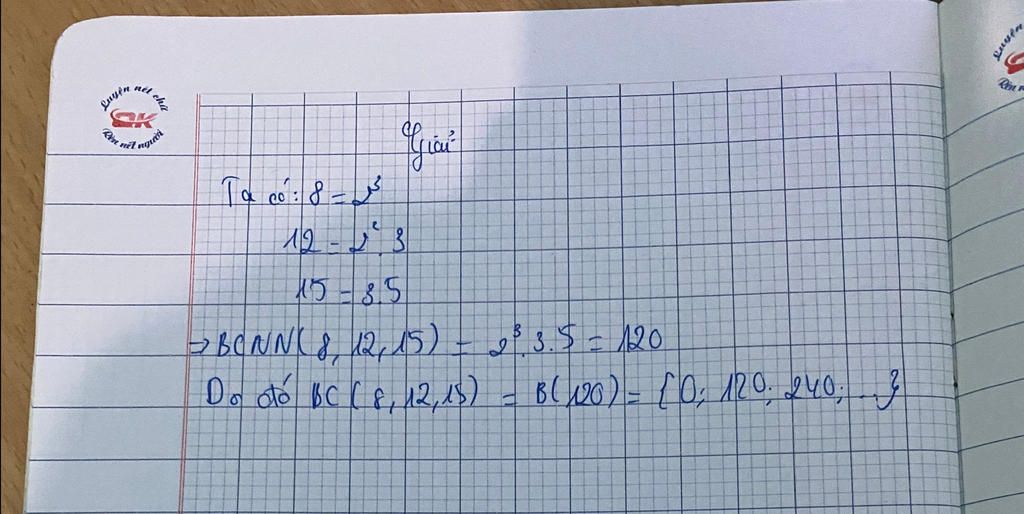 Luyện nét chữ
QK
Rèn nết người
Giải
Ta có: 8 = 2³
12 = 2². 3
15 = 3.5
→ BCNN( 8, 12, 15) = 2³.3.5 = 120
Do đó BC ( 8, 12, 15) = B( 120) = { 0; 120; 240; ...}